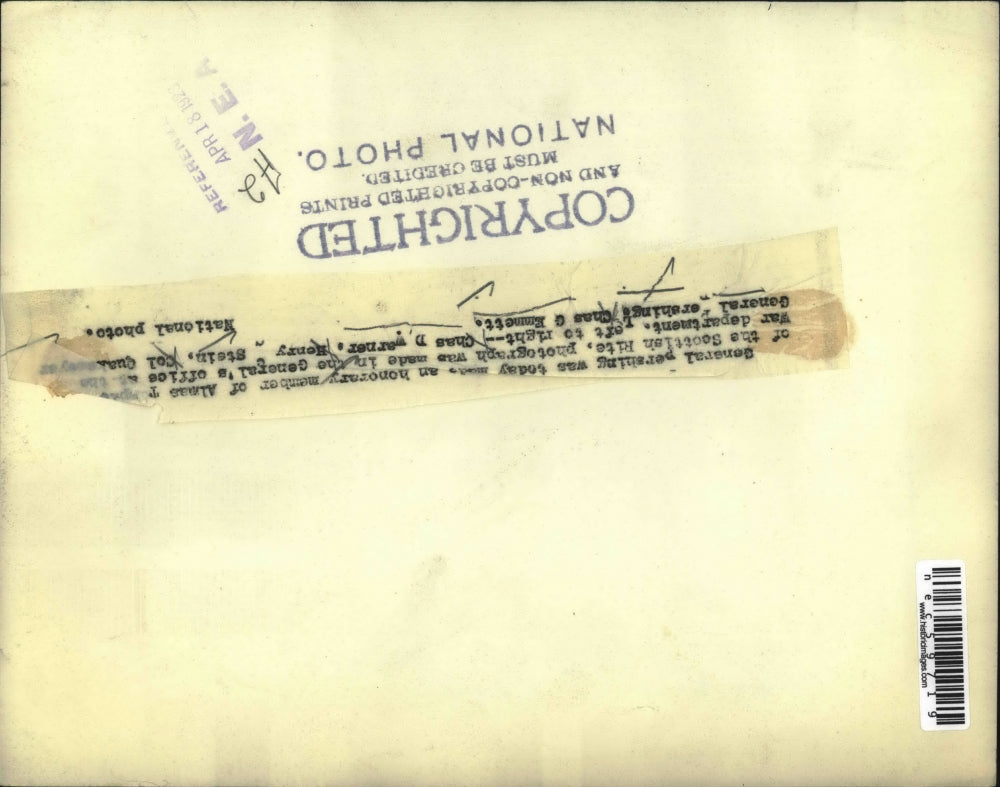 General pershing was today made an honorary member of Almas T
of the Scottish Rite, photograph was made in the General's office at the
War department. Left to right-- Chas D Warner, Henry Stein, Col
General Pershing, Chas G Emmett.
National photo.
COPYRIGHTED
AND NON-COPYRIGHTED PRINTS
MUST BE CREDITED.
NATIONAL PHOTO.
#2
APR 18 1923
N. E. A
necs9719
www.historicimages.com